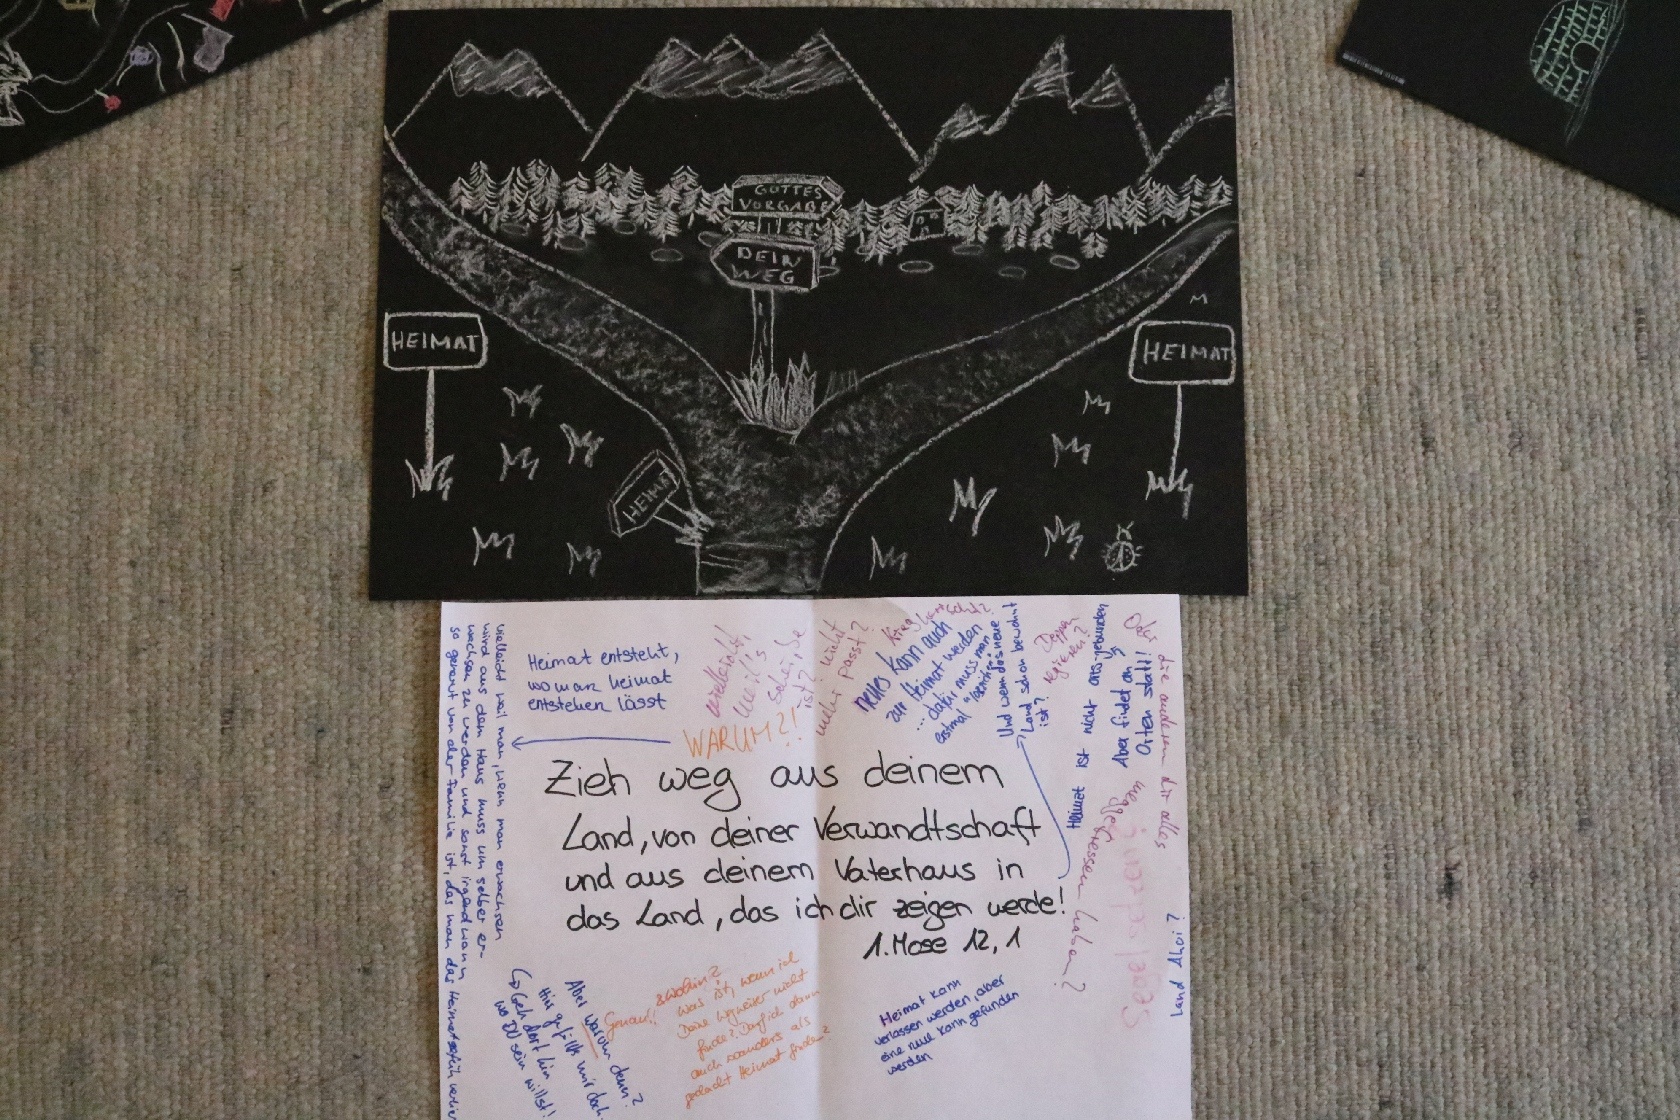 GOTTES
VORGABE
DEIN
WEG
HEIMAT
HEIMAT
HEIMAT
vielleicht weil man, wenn man erwachsen
wird aus dem Haus muss um selber er-
wachsen zu werden und sonst irgendwann
so genervt von der Familie ist, das man das Heimatgefühl
Heimat entsteht,
wo man heimat
entstehen lässt
vielleicht,
weil's
Scheiße
ist?
nicht
mehr passt?
Krieg herrscht?
neues kann auch
zur Heimat werden
... dafür muss man
erstmal
Und wenn das neue
Land schon bewohnt
ist?
Deppen
regieren?
Heimat ist nicht orts-gebunden
Aber findet an
Orten statt!
Oder
die anderen dir alles
weggefressen haben?
WARUM?!
Zieh weg aus deinem
Land, von deiner Verwandtschaft
und aus deinem Vaterhaus in
das Land, das ich dir zeigen werde!
1. Mose 12, 1
Segel setzen
Land Ahoi?
Aber warum denn?
Hier gefällt mir doch
Geh dort hin
wo DU sein willst!
Genau!!
& wohin?
Was ist, wenn ich
Deine Wegweiser nicht
finde? Darf ich dann
auch woanders als
gedacht Heimat finden?
Heimat kann
verlassen werden, aber
eine neue kann gefunden
werden